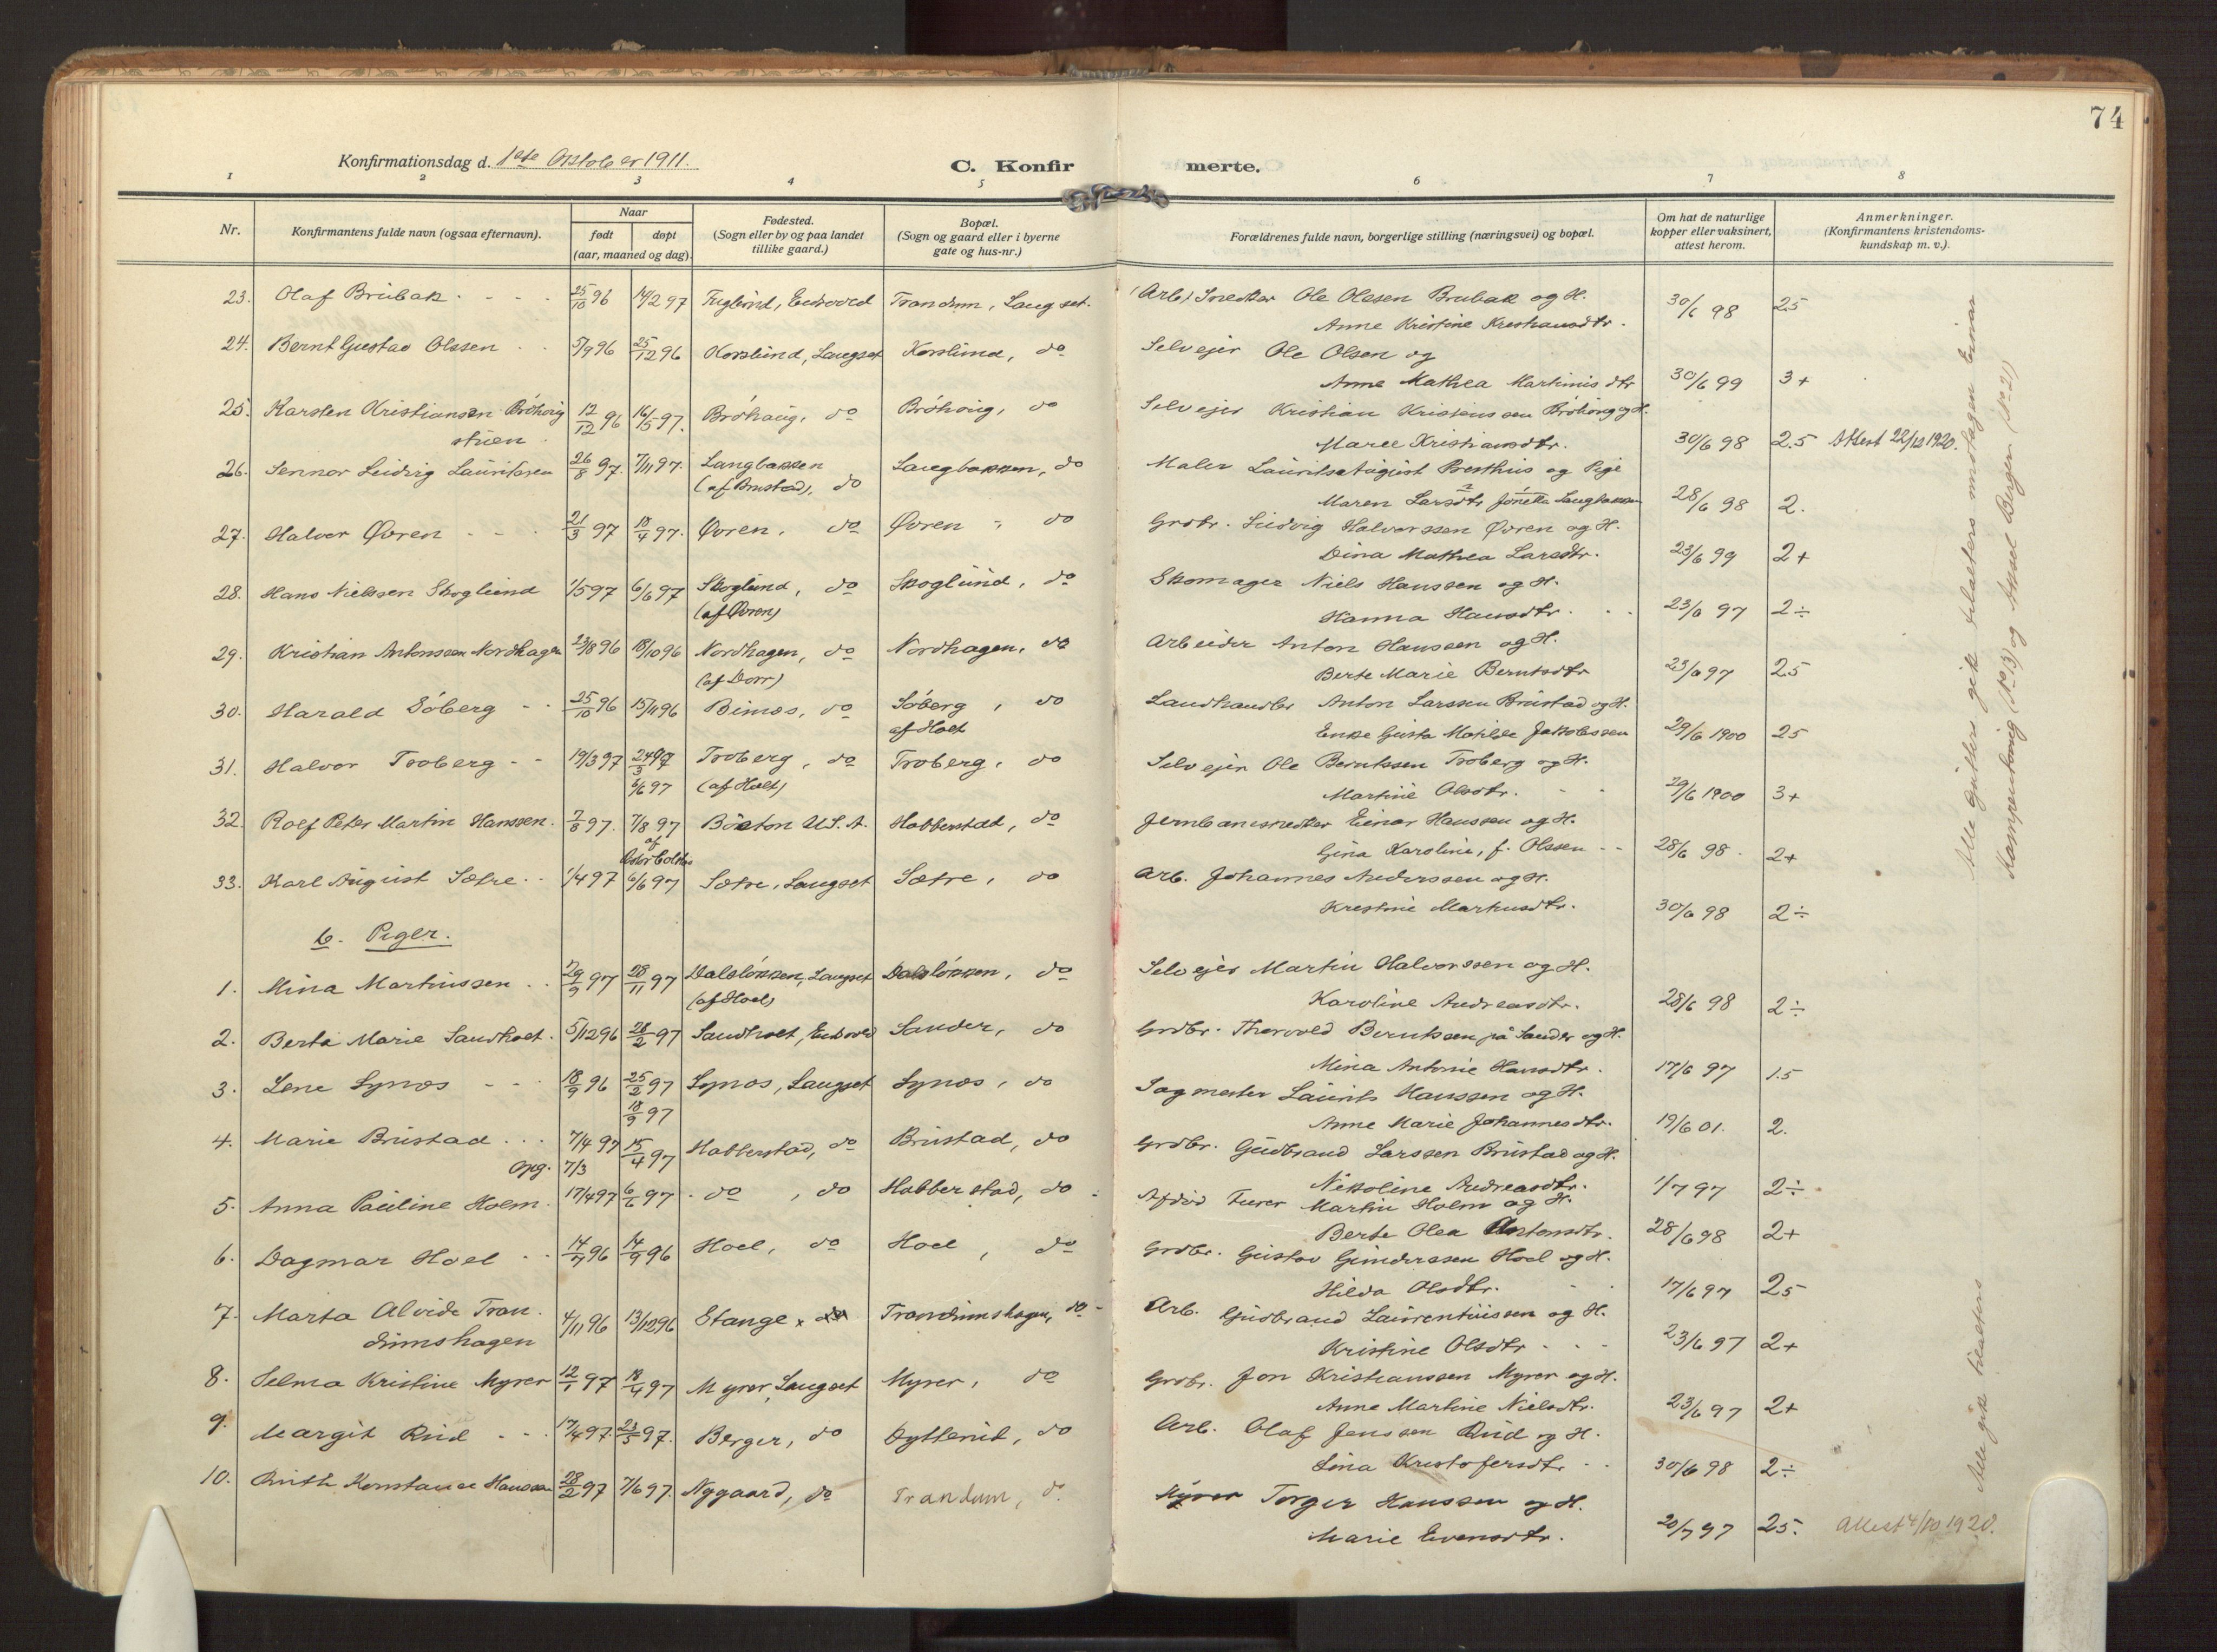 74
Konfirmationsdag d. 1ste Oktober 1911.
C. Konfir merte.
1 2 3 4 5 6 7 8
Nr.
Konfirmantens fulde navn (ogsaa efternavn).
Naar
født
døpt
(aar, maaned og dag).
Fødested.
(Sogn eller by og paa landet
tillike gaard.)
Bopæl.
(Sogn og gaard eller i byerne
gate og hus-nr.)
Forældrenes fulde navn, borgerlige stilling (næringsvei) og bopæl.
Om hat de naturlige
kopper eller vaksinert,
attest herom.
Anmerkninger.
(Konfirmantens kristendoms-
kundskap m. v.).
23. Olaf Brubak 25/10 96 14/2 97 Fuglund, Eidsvold Trandum, Langset. (Arb.) Snedker Ole Olssen Brubak og H.
Anne Kristine Kristiansdtr. 30/6 98 2.5
24. Bernt Gustav Olssen 5/9 96 25/12 96 Korslund, Langset Korslund, do Selvejer Ole Olsen og
Anne Mathea Martinisdtr 30/6 99 3+
25. Karsten Kristiansen Bröhaug 12/12 96 16/5 97. Bröhaug, do Bröhaug, do Selvejer Kristian Kristenssen Bröhaug og H.
stuen. Maree Kristiansdtr. 30/6 98 2.5 Attest 22/12 1920.
26. Sennor Ludvig Lauritssen 26/8 97. 7/11 97. Langbakken Langbakken, do Maler Laurits August Presthus og Pige
(af Brustad), do Maren Larsdtr Jonetta Langbakken 28/6 98 2.
27. Halvor Øvren 21/3 97 18/4 97. Øvren, do Øvren, do Grdbr. Ludvig Halvorssen Øvren og H.
Dina Mathea Larsdtr. 23/6 99 2+
28. Hans Nielssen Skoglund 1/5 97 6/6 97 Skoglund, do Skoglund, do Skomager Niels Hanssen og H.
(af Øvren) Hanna Hansdtr. 23/6 97 2÷
29. Kristian Antonssen Nordhagen 23/8 96 18/10 96 Nordhagen, do Nordhagen, do Arbeider Anton Hanssen og H.
(af Dorr) Berte Marie Berntsdtr 23/6 97 2.5
30. Harald Söberg 25/10 96 15/11 96 Bimos, do Söberg, do Landhandler Anton Larssen Brustad og H.
af Holt Enke Gusta Matilde Jakobssen 29/6 1900 2.5
31. Halvor Troberg 19/3 97 24/3 97 Troberg, do Troberg, do Selvejer Ole Berntssen Troberg og H.
6/6 97 (af Holt) Martine Olsdtr. 29/6 1900 3+
32. Rolf Peter Martin Hanssen. 7/8 97. 7/8 97 Boston U.S.A. Habberstad, do Jernbanesnedker Einar Hanssen og H.
Gina Karoline, f. Olssen 28/6 98. 2+
33. Karl August Sætre 1/4 97 6/6 97 Sætre, Langset Sætre, do Arb. Johannes Anderssen og H.
Krestine Markusdtr. 30/6 98 2÷
b. Piger.
1. Mina Martinssen 29/9 97 28/11 97 Dalsløkken, Langset Dalsløkken, do Selvejer Martin Halvorssen og H.
(af Hoel) Karoline Andreasdtr. 28/6 98 2÷
2. Berta Marie Sandholt. 5/12 96 28/2 97 Sandholt, Eidsvold Sander, do Grdbr. Thorvald Berntssen på Sander og H.
Mina Antonie Hansdtr. 17/6 97 1.5
3. Lene Synos 18/9 96 25/2 97 Synos, Langset Synos, do Sagmester Laurits Hanssen og H.
18/9 97 Anne Marie Johannesdtr. 19/6 01. 2.
4. Marie Brustad 7/4 97 15/4 97 Habberstad, do Brustad, do Grdbr. Gudbrand Larssen Brustad og H.
Opg. 7/3 Nikoline Andreasdtr. 1/7 97 2÷
5. Anna Pauline Holm. 17/4 97 6/6 97 do, do Habberstad, do Afdød Furer Martin Holm og H.
Berte Olea Antonsdtr. 28/6 98 2+
6. Dagmar Hoel 14/7 96 14/9 96 Hoel, do Hoel, do Grdbr. Gustav Gunderssen Hoel og H.
Hilda Olsdtr. 17/6 97 2.5
7. Marta Alvide Tran 4/11 96 13/12 96 Stange Trandumshagen, do Arb. Gudbrand Laurentiussen og H.
dumshagen Kristine Olsdtr 23/6 97 2+
8. Selma Kristine Myrer 12/1 97 18/4 97 Myrer, Langset Myrer, do Grdbr. Jon Kristianssen Myrer og H.
Anne Martine Nielsdtr. 23/6 97 2+
9. Margit Ruid 17/4 97. 23/5 97. Berger, do Dytterud, do Arb. Olaf Jenssen Ruid og H.
Lina Kristofersdtr 30/6 98 2÷
10. Ruth Konstance Hanssen 28/2 97 7/6 97. Nygaard, do Trandum, do Myrer Torger Hanssen og H.
Marie Evensdtr. 20/7 97 2.5. Attest 4/10 1920.
Alle gutters gik tilalters undtagen Einar
(No 13) og Aksel Bergen (No 21)
Alle gik tilalters